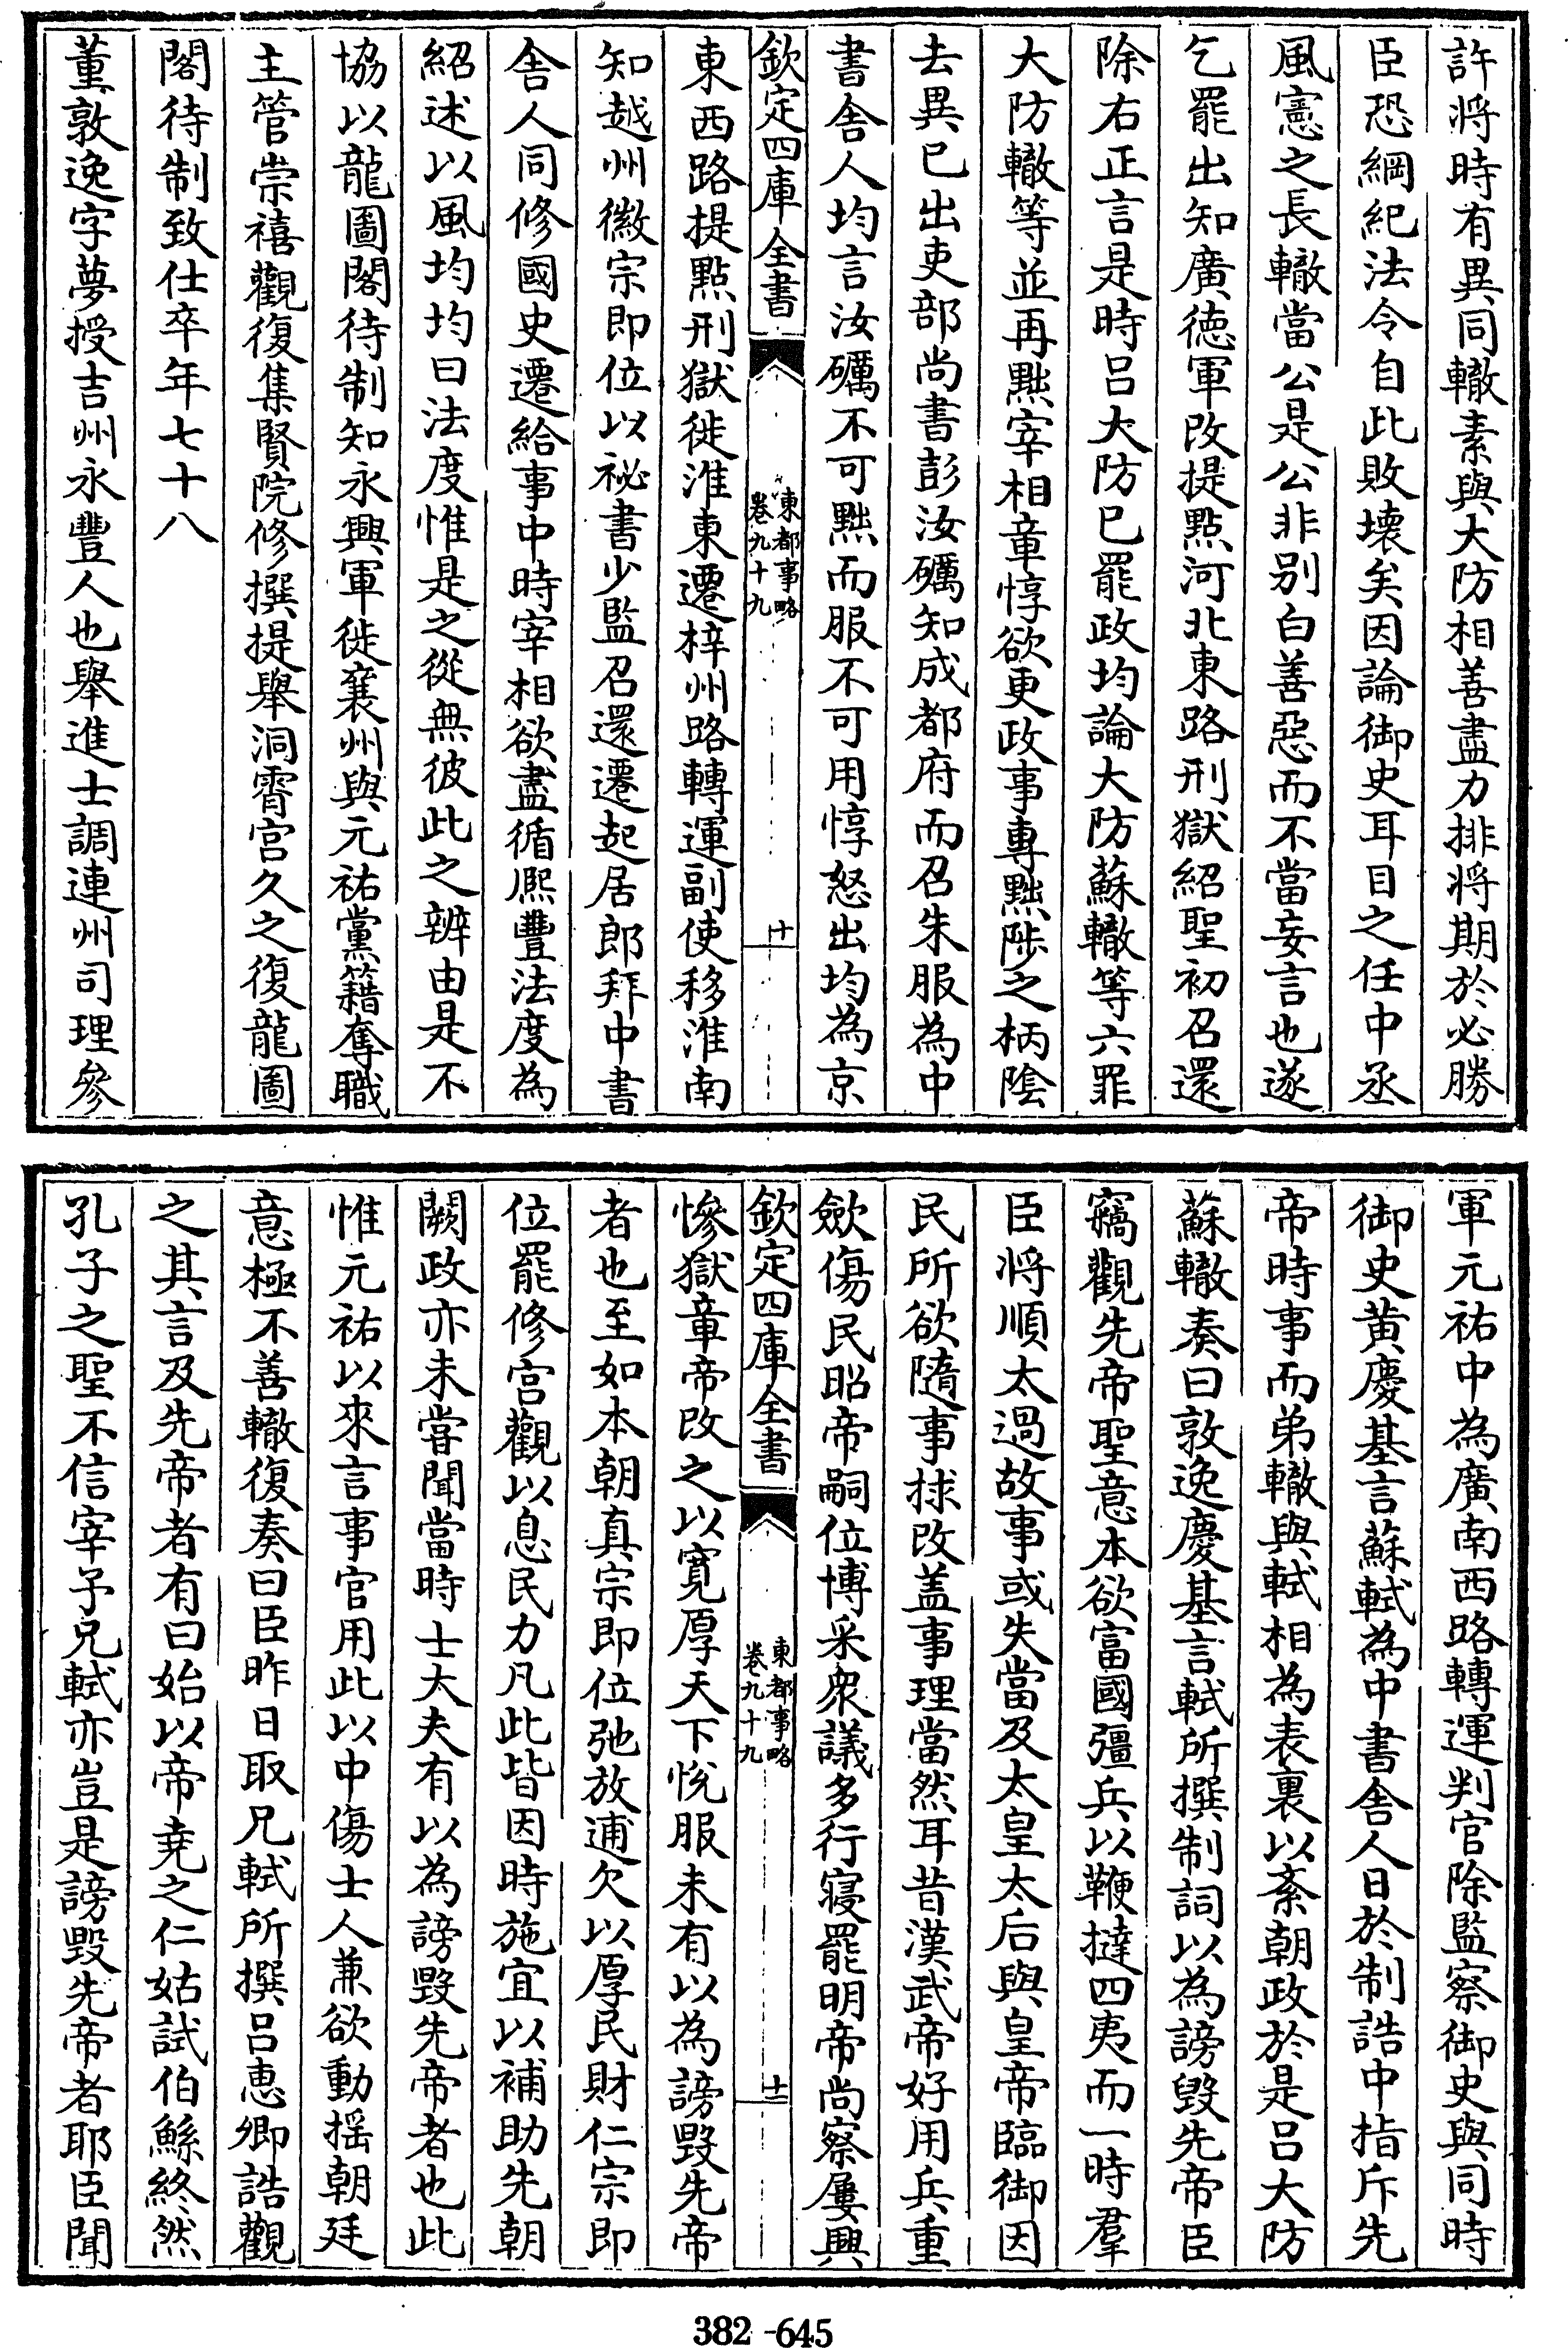 許將時有異同轍素與大防相善盡力排將期於必勝
臣恐綱紀法令自此敗壞矣因論御史耳目之任中丞
風憲之長轍當公是公非别白善惡而不當妄言也遂
乞罷出知廣徳軍改提㸃河北東路刑獄紹聖初召還
除右正言是時吕大防已罷政均論大防蘇轍等六罪
大防轍等並再黜宰相章惇欲更政事專黜陟之柄隂
去異己出吏部尚書彭汝礪知成都府而召朱服為中
書舍人均言汝礪不可黜而服不可用惇怒出均為京
欽定四庫全書
東都事略
卷九十九
十
東西路提㸃刑獄徙淮東遷梓州路轉運副使移淮南
知越州徽宗即位以祕書少監召還遷起居郎拜中書
舍人同修國史遷給事中時宰相欲盡循熈豐法度為
紹述以風均均曰法度惟是之從無彼此之辨由是不
協以龍圖閣待制知永興軍徙襄州與元祐黨籍奪職
主管崇禧觀復集賢院修撰提舉洞霄宫久之復龍圖
閣待制致仕卒年七十八
董敦逸字夢授吉州永豐人也舉進士調連州司理參
軍元祐中為廣南西路轉運判官除監察御史與同時
御史黄慶基言蘇軾為中書舍人日於制誥中指斥先
帝時事而弟轍與軾相為表裏以紊朝政於是吕大防
蘇轍奏曰敦逸慶基言軾所撰制詞以為謗毁先帝臣
竊觀先帝聖意本欲富國彊兵以鞭撻四夷而一時羣
臣將順太過故事或失當及太皇太后與皇帝臨御因
民所欲隨事捄改盖事理當然耳昔漢武帝好用兵重
歛傷民昭帝嗣位博采衆議多行寝罷明帝尚察屢興
欽定四庫全書
東都事略
卷九十九
十一
慘獄章帝改之以寛厚天下悅服未有以為謗毁先帝
者也至如本朝真宗即位弛放逋欠以厚民財仁宗即
位罷修宫觀以息民力凡此皆因時施宜以補助先朝
闕政亦未嘗聞當時士大夫有以為謗毁先帝者也此
惟元祐以來言事官用此以中傷士人兼欲動揺朝廷
意極不善轍復奏曰臣昨日取兄軾所撰吕恵卿誥觀
之其言及先帝者有曰始以帝堯之仁姑試伯鯀終然
孔子之聖不信宰予兄軾亦豈是謗毁先帝者耶臣聞
382-645